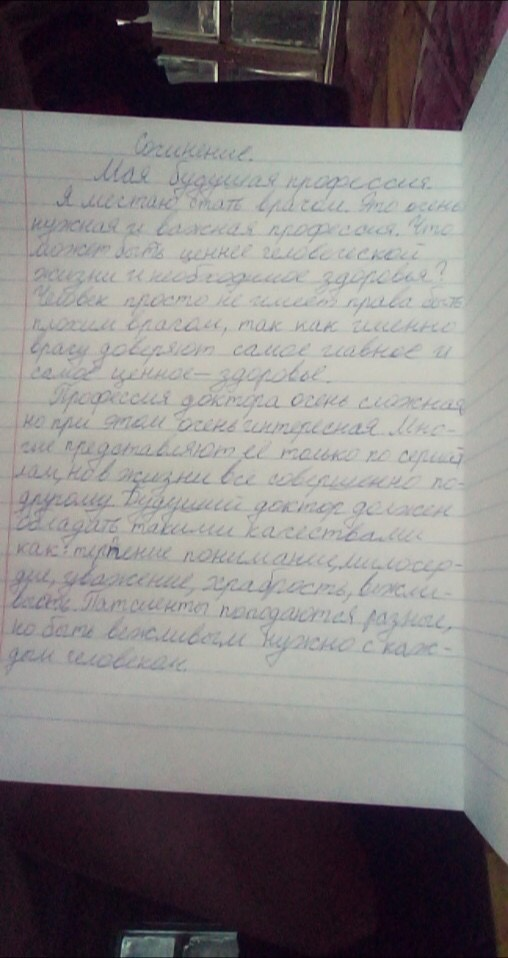 Сочинение.
Мая будущая профессия.
Я местаю стать врачом. Это осень
нужная и важная профессия. Что
может быть ценнее человеческой
жизни и необходимое здоровья?
Человек просто не имеет права быть
плохим врагом, так как именно
врагу доверяют самое главное и
самое ценное — здоровье.
Профессия доктора осень сложная,
но при этом осень интересная. Мно-
гие представляют её только по сериа
лам, но в жизни все совершенно по-
другому. Будущий доктор должен
обладать такими качествами
как: терпение понимание, милосер-
дие, уважение, храбрость, вежли-
вость. Патсиенты поподаются разные,
но быть вежливым нужно с каж-
дым человеком.